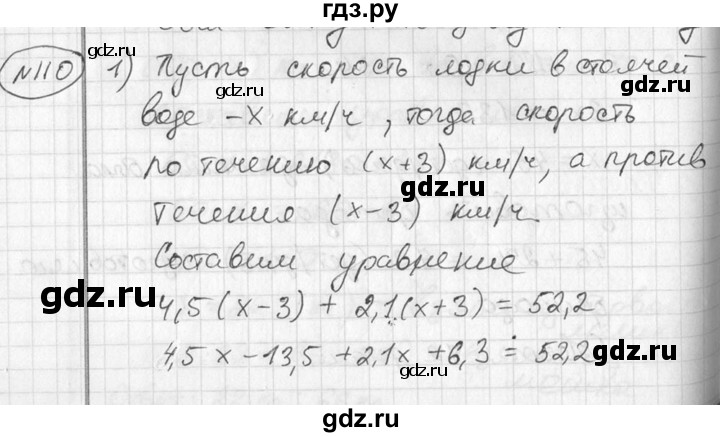 гдз.ру
№110 1) Пусть скорость лодки в стоячей
воде - х км/ч, тогда скорость
по течению (х+3) км/ч, а против
течения (х-3) км/ч.
Составим уравнение
4,5(х-3) + 2,1(х+3) = 52,2
4,5х - 13,5 + 2,1х + 6,3 = 52,2
gdz.ru
gdz.ru
gdz.ru
gdz.ru
gdz.ru
gdz.ru
gdz.ru
gdz.ru
gdz.ru